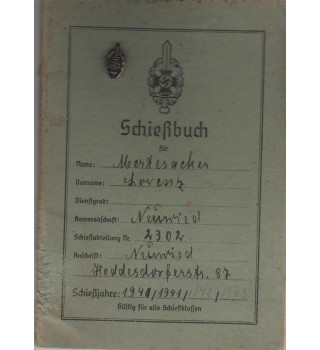 Schießbuch
für
Name: Mertesacker
Vorname: Lorenz
Dienstgrad:
Kameradschaft: Neuwied
Schießabteilung Nr. 2302
Anschrift: Neuwied
Heddesdorferstr. 87
Schießjahre: 1940/1941/1942/1943
Gültig für alle Schießklassen